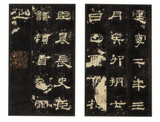 建寧二年三
月癸卯朔七
日己酉魯相
臣晨長史臣